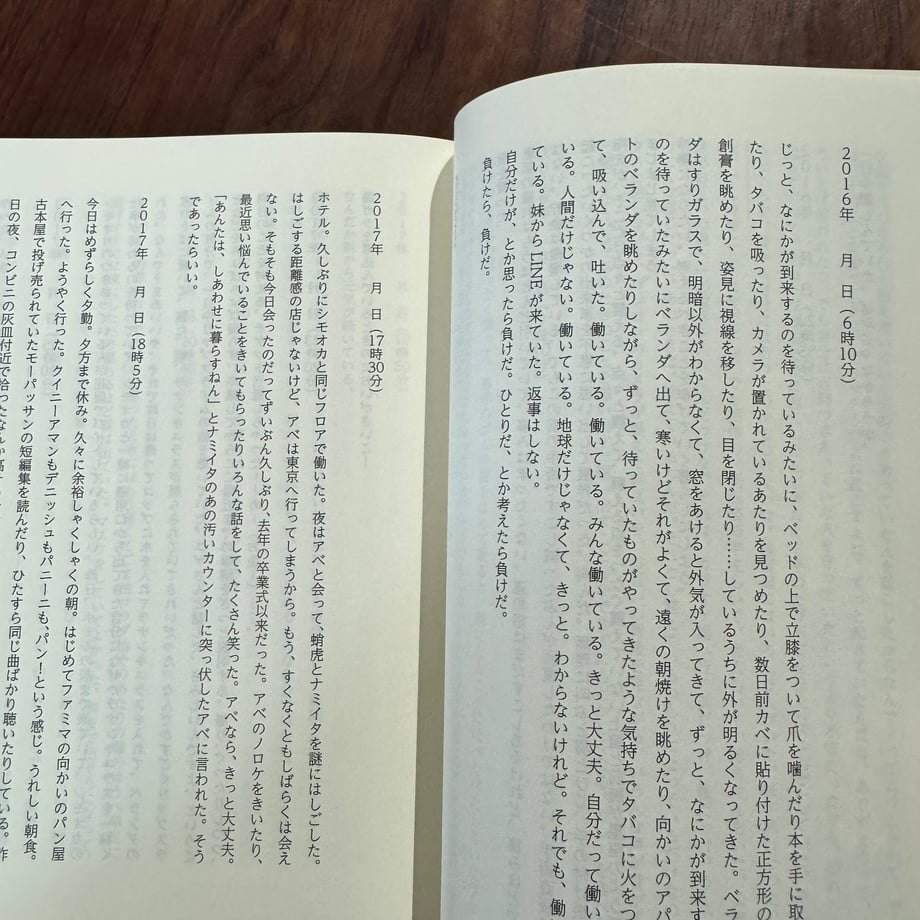 2016年　月　日（6時10分）
じっと、なにかが到来するのを待っているみたいに、ベッドの上で立膝をついて爪を噛んだり本を手に取
たり、タバコを吸ったり、カメラが置かれているあたりを見つめたり、数日前カベに貼り付けた正方形の
創膏を眺めたり、姿見に視線を移したり、目を閉じたり……しているうちに外が明るくなってきた。ベラ
ダはすりガラスで、明暗以外がわからなくて、窓をあけると外気が入ってきて、ずっと、なにかが到来す
のを待っていたみたいにベランダへ出て、寒いけどそれがよくて、遠くの朝焼けを眺めたり、向かいのアパ
トのベランダを眺めたりしながら、ずっと、待っていたものがやってきたような気持ちでタバコに火をつ
て、吸い込んで、吐いた。働いている。働いている。みんな働いている。きっと大丈夫。自分だって働い
いる。人間だけじゃない。働いている。地球だけじゃなくて、きっと。わからないけれど。それでも、働
ている。妹からLINEが来ていた。返事はしない。
自分だけが、とか思ったら負けだ。ひとりだ、とか考えたら負けだ。
負けたら、負けだ。
2017年　月　日（17時30分）
ホテル。久しぶりにシモオカと同じフロアで働いた。夜はアベと会って、蛸虎とナミイタを謎にはしごした。
はしごする距離感の店じゃないけど、アベは東京へ行ってしまうから。もう、すくなくともしばらくは会え
ない。そもそも今日会ったのだってずいぶん久しぶり、去年の卒業式以来だった。アベのノロケをきいたり、
最近思い悩んでいることをきいてもらったりいろんな話をして、たくさん笑った。アベなら、きっと大丈夫。
「あんたは、しあわせに暮らすねん」とナミイタのあの汚いカウンターに突っ伏したアベに言われた。そう
であったらいい。
2017年　月　日（18時5分）
今日はめずらしく夕勤。夕方まで休み。久々に余裕しゃくしゃくの朝。はじめてファミマの向かいのパン屋
へ行った。ようやく行った。クイニーアマンもデニッシュもパニーニも、パン！という感じ。うれしい朝食。
古本屋で投げ売られていたモーパッサンの短編集を読んだり、ひたすら同じ曲ばかり聴いたりしている。昨
日の夜、コンビニの灰皿付近で拾ったなんか高